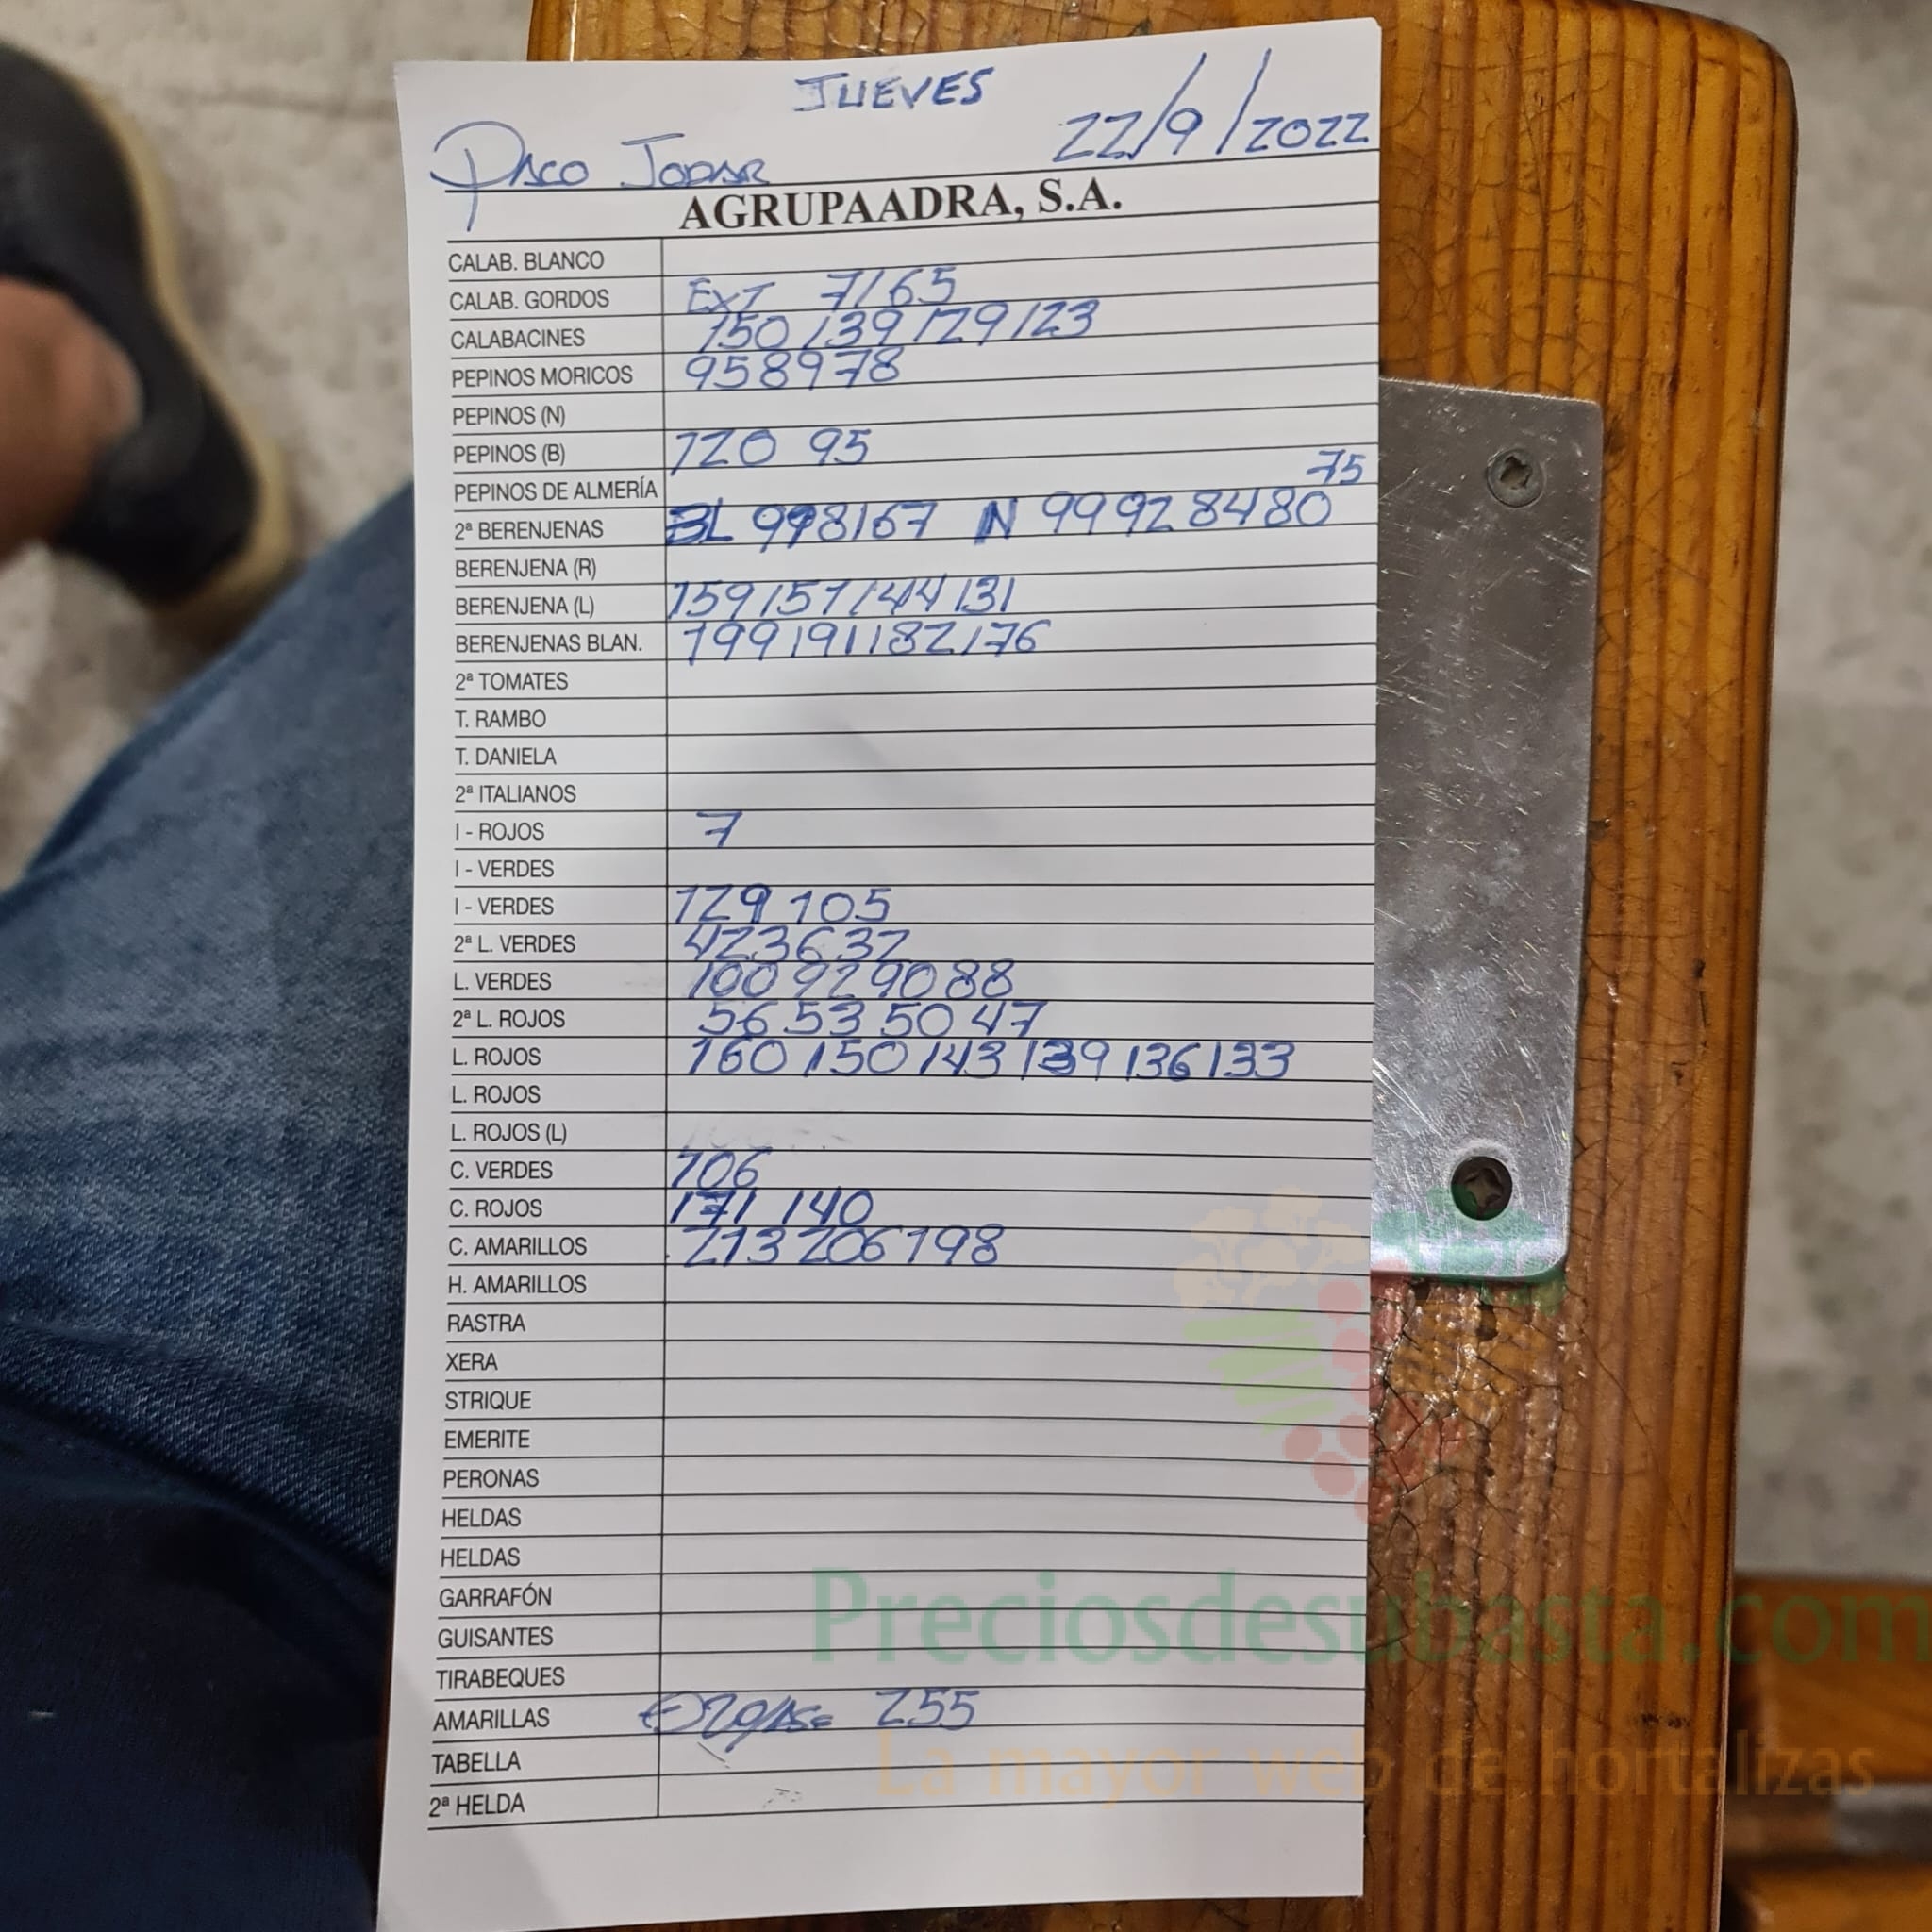 JUEVES
PACO JODAR 22/9/2022
AGRUPAADRA, S.A.
CALAB. BLANCO
CALAB. GORDOS EXT 7/65
CALABACINES 150 139 129 123
PEPINOS MORICOS 958978
PEPINOS (N)
PEPINOS (B) 120 95
PEPINOS DE ALMERÍA 75
2ª BERENJENAS BL 998167 N 99928480
BERENJENA (R)
BERENJENA (L) 159 157 144 131
BERENJENAS BLAN. 199 191 182 176
2ª TOMATES
T. RAMBO
T. DANIELA
2ª ITALIANOS
I - ROJOS 7
I - VERDES
I - VERDES 129 105
2ª L. VERDES 423632
L. VERDES 100 92 90 88
2ª L. ROJOS 56 53 50 47
L. ROJOS 160 150 143 139 136 133
L. ROJOS
L. ROJOS (L)
C. VERDES 106
C. ROJOS 171 140
C. AMARILLOS 213 206 198
H. AMARILLOS
RASTRA
XERA
STRIQUE
EMERITE
PERONAS
HELDAS
HELDAS
GARRAFÓN
GUISANTES
TIRABEQUES
AMARILLAS 255
TABELLA
2ª HELDA
Preciosdesubasta.com
La mayor web de hortalizas